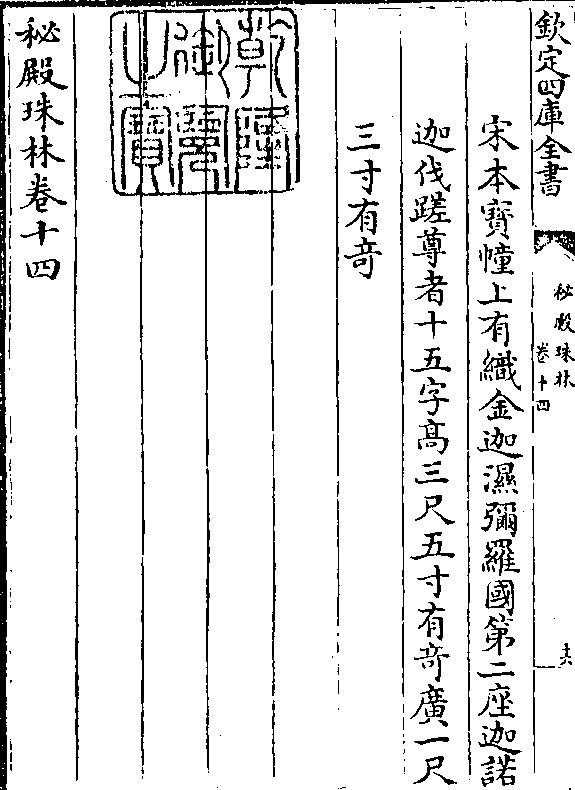 欽定四庫全書
秘殿珠林
卷十四
十六
宋本寳幢上有織金迦濕彌羅國第二座迦諾
迦伐蹉尊者十五字髙三尺五寸有奇廣一尺
三寸有奇
乾隆御覽之寳
秘殿珠林卷十四